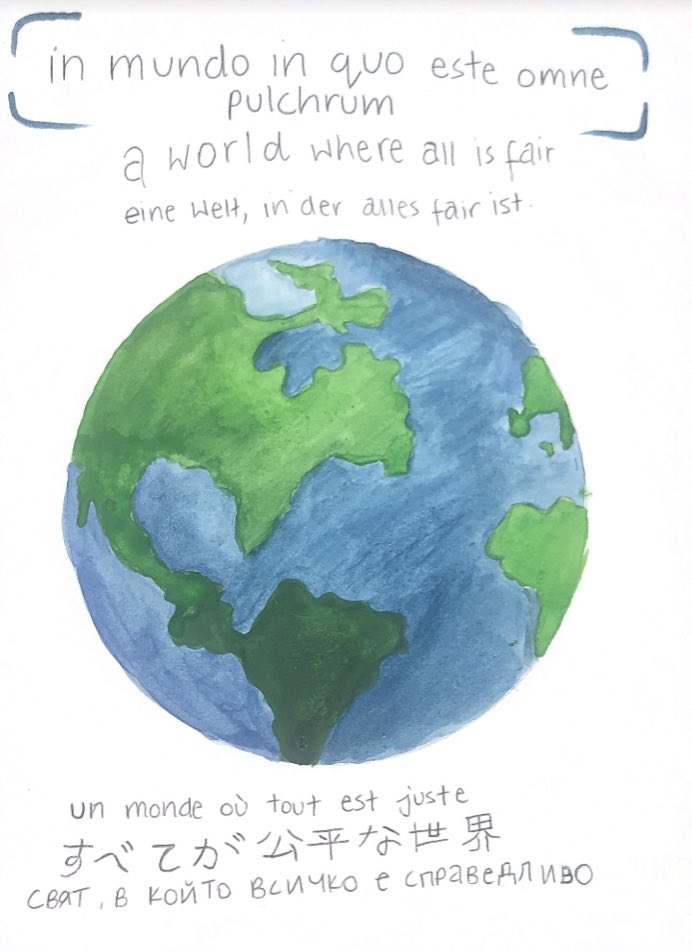 in mundo in quo este omne
pulchrum
a world where all is fair
eine Welt, in der alles fair ist.
un monde où tout est juste
すべてが公平な世界
свят, в който всичко е справедливо